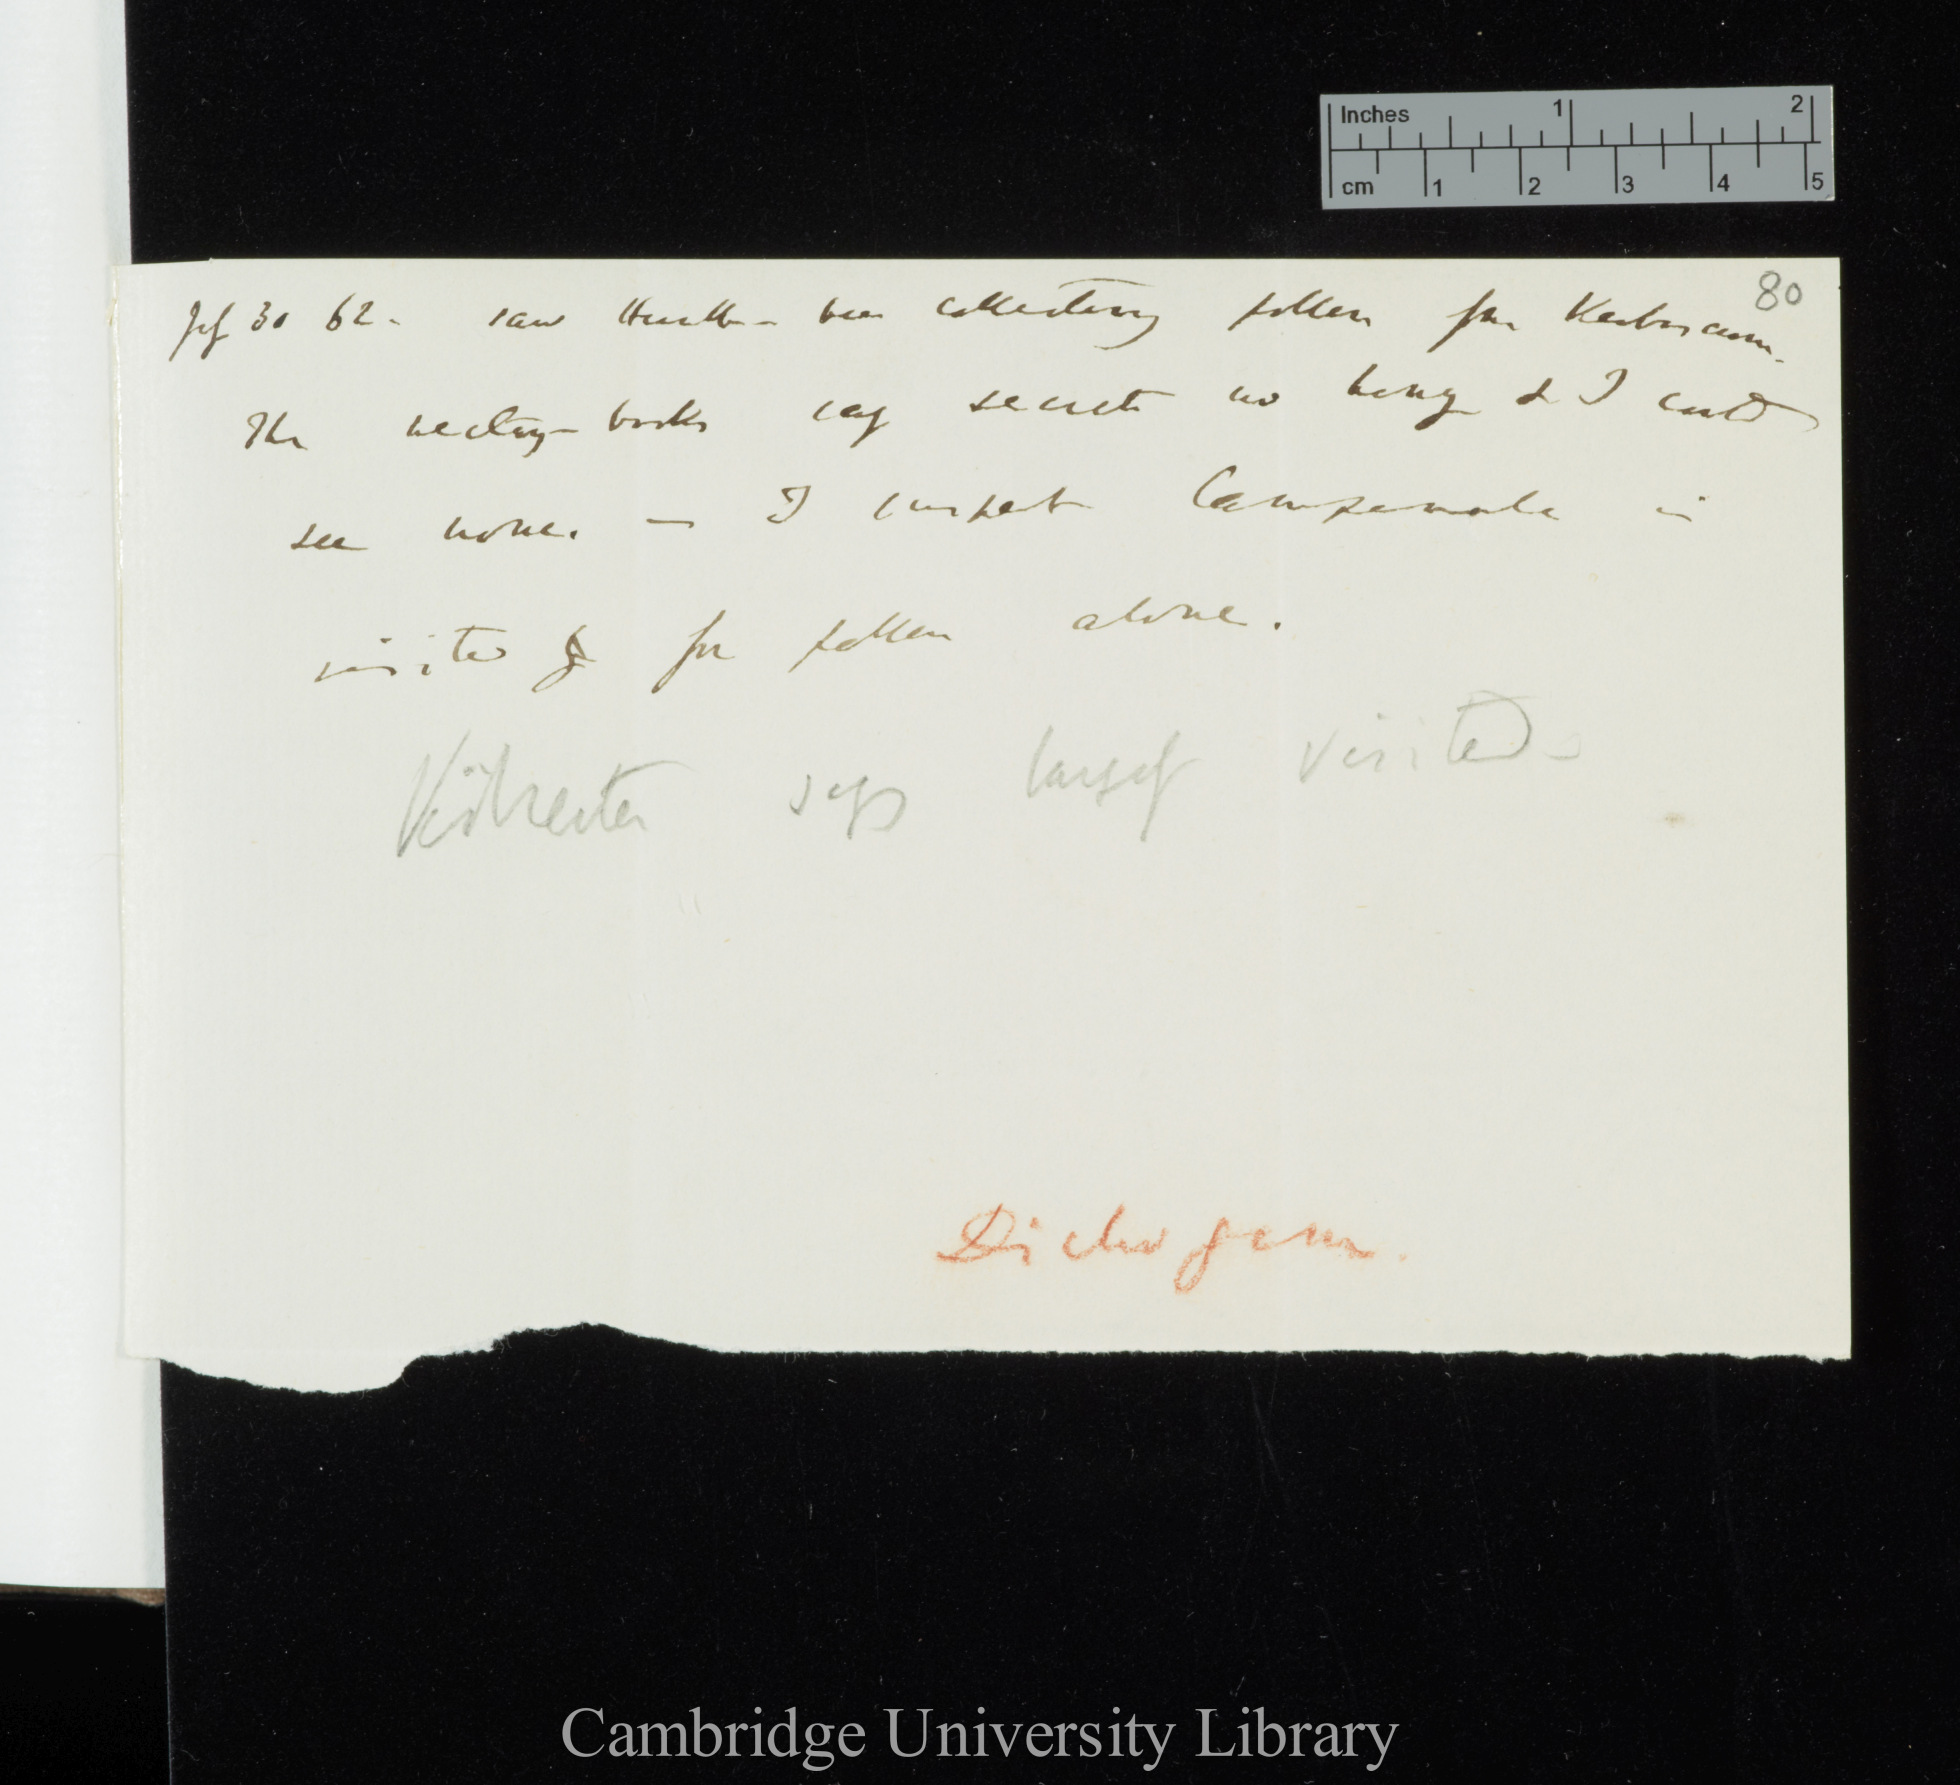 Inches 1 2
cm 1 2 3 4 5
80
July 30 62. saw Humble-bees collecting pollen from Verbascum.
The nectary-books say secretes no honey & I could
see none. — I suspect Campanula is
visited for pollen alone.
Kölreuter says largely visited
Dichogam.
Cambridge University Library